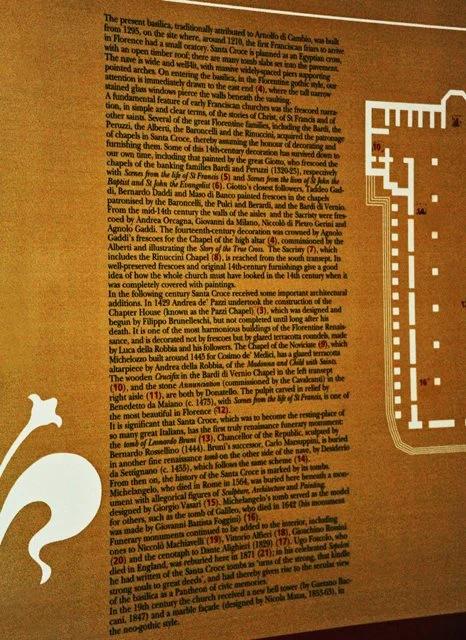 The present basilica, traditionally attributed to Arnolfo di Cambio, was built
from 1295, on the site where, around 1210, the first Franciscan friars to arrive
in Florence had a small oratory. Santa Croce is planned as an Egyptian cross,
with an open timber roof; there are many tomb slabs set into the pavement.
The nave is wide and well-lit, with massive widely-spaced piers supporting
pointed arches. On entering the basilica, in the Florentine gothic style, our
attention is immediately drawn to the east end (4), where the tall narrow
stained glass windows pierce the walls beneath the vaulting.
A fundamental feature of early Franciscan churches was the frescoed narra-
tion, in simple and clear terms, of the stories of Christ, of St Francis and of
other saints. Several of the great Florentine families, including the Bardi, the
Peruzzi, the Alberti, the Baroncelli and the Rinuccini, acquired the patronage
of chapels in Santa Croce, thereby assuming the honour of decorating and
furnishing them. Some of this 14th-century decoration has survived down to
our own time, including that painted by the great Giotto, who frescoed the
chapels of the banking families Bardi and Peruzzi (1320-25), respectively
with Scenes from the life of St Francis (5) and Scenes from the lives of St John the
Baptist and St John the Evangelist (6). Giotto's closest followers, Taddeo Gad-
di, Bernardo Daddi and Maso di Banco painted frescoes in the chapels
patronised by the Baroncelli, the Pulci and Berardi, and the Bardi di Vernio.
From the mid-14th century the walls of the aisles and the Sacristy were fres-
coed by Andrea Orcagna, Giovanni da Milano, Niccolò di Pietro Gerini and
Agnolo Gaddi. The fourteenth-century decoration was crowned by Agnolo
Gaddi's frescoes for the Chapel of the high altar (4), commissioned by the
Alberti and illustrating the Story of the True Cross. The Sacristy (7), which
includes the Rinuccini Chapel (8), is reached from the south transept. Its
well-preserved frescoes and original 14th-century furnishings give a good
idea of how the whole church must have looked in the 14th century when it
was completely covered with paintings.
In the following century Santa Croce received some important architectural
additions. In 1429 Andrea de' Pazzi undertook the construction of the
Chapter House (known as the Pazzi Chapel) (3), which was designed and
begun by Filippo Brunelleschi, but not completed until long after his
death. It is one of the most harmonious buildings of the Florentine Renais-
sance, and is decorated not by frescoes but by glazed terracotta roundels, made
by Luca della Robbia and his followers. The Chapel of the Noviciate (9), which
Michelozzo built around 1445 for Cosimo de' Medici, has a glazed terracotta
altarpiece by Andrea della Robbia, of the Madonna and Child with Saints.
The wooden Crucifix in the Bardi di Vernio Chapel in the left transept
(10), and the stone Annunciation (commissioned by the Cavalcanti) in the
right aisle (11), are both by Donatello. The pulpit carved in relief by
Benedetto da Maiano (c. 1475), with Scenes from the life of St Francis, is one of
the most beautiful in Florence (12).
It is significant that Santa Croce, which was to become the resting-place of
so many great Italians, has the first truly renaissance funerary monument:
the tomb of Leonardo Bruni (13), Chancellor of the Republic, sculpted by
Bernardo Rossellino (1444). Bruni's successor, Carlo Marsuppini, is buried
in another fine renaissance tomb on the other side of the nave, by Desiderio
da Settignano (c. 1455), which follows the same scheme (14).
From then on, the history of the Santa Croce is marked by its tombs.
Michelangelo, who died in Rome in 1564, was buried here beneath a mon-
ument with allegorical figures of Sculpture, Architecture and Painting,
designed by Giorgio Vasari (15). Michelangelo's tomb served as the model
for others, such as the tomb of Galileo, who died in 1642 (his monument
was made by Giovanni Battista Foggini) (16).
Funerary monuments continued to be added to the interior, including
ones to Niccolò Machiavelli (19), Vittorio Alfieri (18), Gioachino Rossini
(20) and the cenotaph to Dante Alighieri (1829) (17). Ugo Foscolo, who
died in England, was reburied here in 1871 (21); in his celebrated Sepolcri
he had written of the Santa Croce tombs as 'urns of the strong, that kindle
strong souls to great deeds', and had thereby given rise to the secular view
of the basilica as a Pantheon of civic memories.
In the 19th century the church received a new bell tower (by Gaetano Bac-
cani, 1847) and a marble façade (designed by Nicola Matas, 1853-63), in
the neo-gothic style.
10
14
16